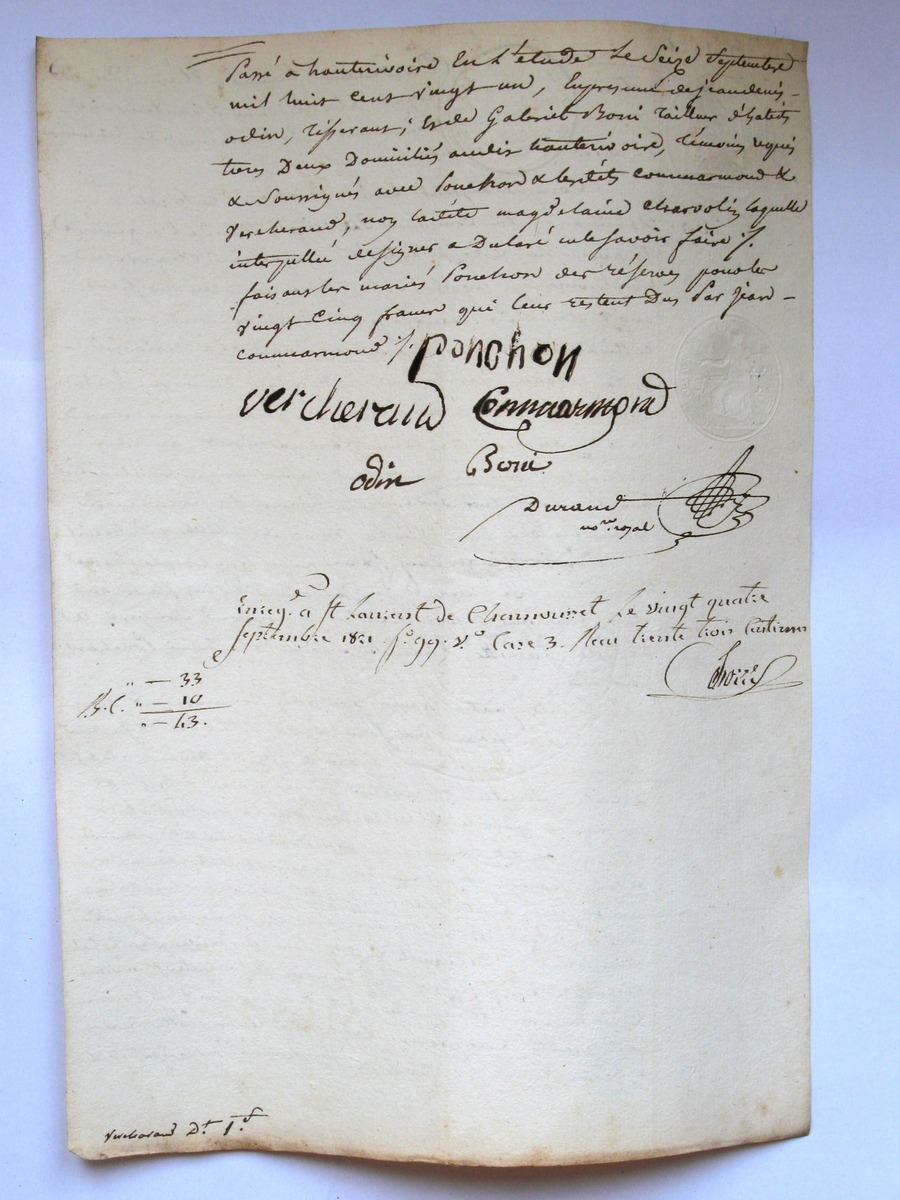 Passé à hauterivoire En L'étude Le Seize Septembre
mil huit cent vingt un, En présence de jean denis
odin, tisserant; Et de Gabriel Boni tailleur d'habits
tous Deux Domiciliés audit hauterivoire, témoins requis
& Soussignés avec Ponchon & lesdits Commarmond &
Vercherand, non ladite magdelaine Charvolin laquelle
interpellée de signer a Déclaré ne le savoir faire ./.
faisant les mariés Ponchon des réserves pour les
vingt Cinq francs qui leur restent Dus Par Jean
Commarmond ./. ponchon
vercherand Commarmond
odin Boni
Durand
no.re royal
Enreg.é a St Laurent de Chamousset Le vingt quatre
Septembre 1821 f.o 99. V.o Case 3. Reçu trente trois Centimes
" — 33
" — 10
" — 43.
vercherand D.t 1.f